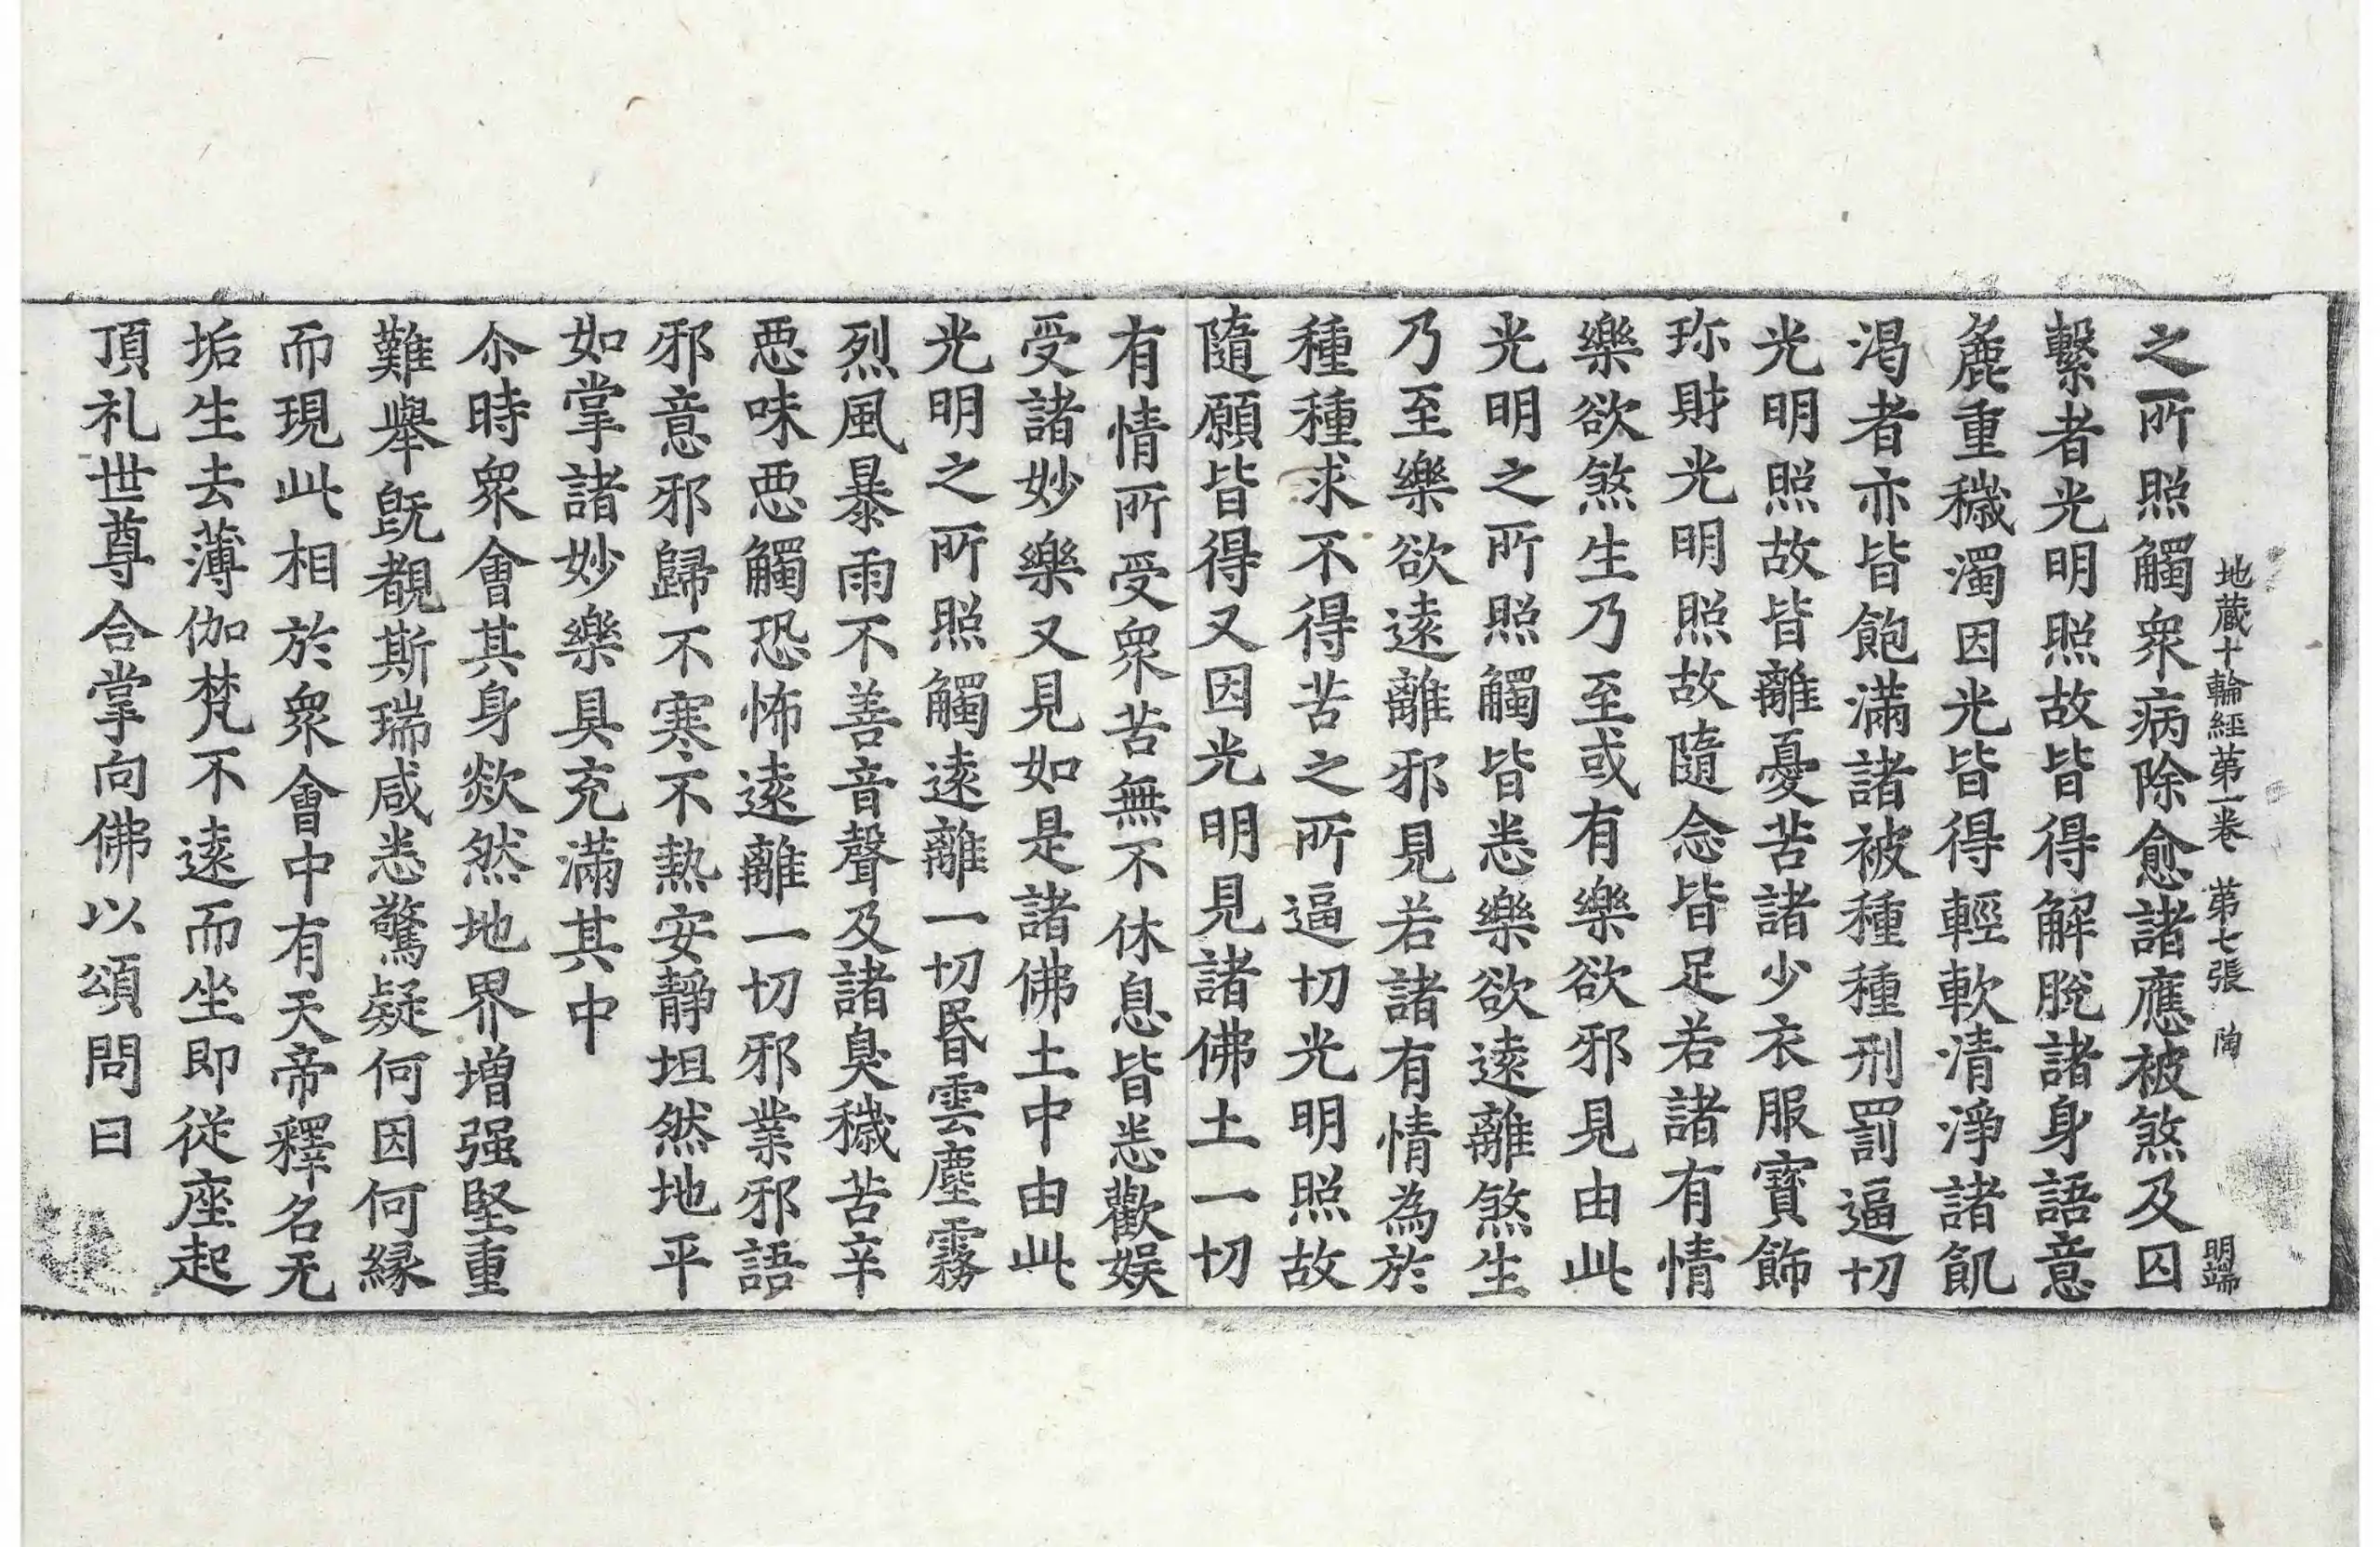 地藏十輪經第一卷 第七張 陶
明端
之所照觸衆病除愈諸應被煞及囚
繫者光明照故皆得解脫諸身語意
麁重穢濁因光皆得輕軟清淨諸飢
渴者亦皆飽滿諸被種種刑罰逼切
光明照故皆離憂苦諸少衣服寶飾
珎財光明照故隨念皆足若諸有情
樂欲煞生乃至或有樂欲邪見由此
光明之所照觸皆悉樂欲遠離煞生
乃至樂欲遠離邪見若諸有情為於
種種求不得苦之所逼切光明照故
隨願皆得又因光明見諸佛土一切
有情所受衆苦無不休息皆悉歡娛
受諸妙樂又見如是諸佛土中由此
光明之所照觸遠離一切昬雲塵霧
烈風暴雨不善音聲及諸臭穢苦辛
惡味惡觸恐怖遠離一切邪業邪語
邪意邪歸不寒不熱安靜坦然地平
如掌諸妙樂具充滿其中
尒時衆會其身欻然地界增强堅重
難舉旣覩斯瑞咸悉驚疑何因何緣
而現此相於衆會中有天帝釋名无
垢生去薄伽梵不遠而坐即從座起
頂礼世尊合掌向佛以頌問曰